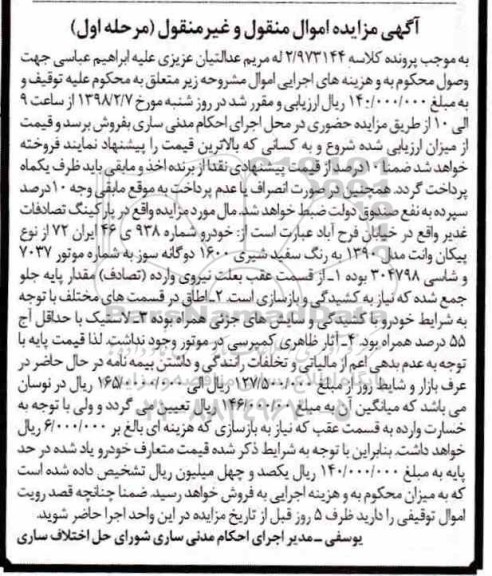 آگهی مزایده اموال منقول و غیرمنقول (مرحله اول)
به موجب پرونده کلاسه ۲/۹۷۳۱۴۴ له مریم عدالتیان عزیزی علیه ابراهیم عباسی جهت
وصول محکوم به و هزینه های اجرایی اموال مشروحه زیر متعلق به محکوم علیه توقیف و
به مبلغ ۱۴۰/۰۰۰/۰۰۰ ریال ارزیابی و مقرر شد در روز شنبه مورخ ۱۳۹۸/۲/۷ از ساعت ۹
الی ۱۰ از طریق مزایده حضوری در محل اجرای احکام مدنی ساری بفروش برسد و قیمت
از میزان ارزیابی شده شروع و به کسانی که بالاترین قیمت را پیشنهاد نمایند فروخته
خواهد شد ضمنا ۱۰درصد از قیمت پیشنهادی نقدا از برنده اخذ و مابقی باید ظرف یکماه
پرداخت گردد. همچنین در صورت انصراف یا عدم پرداخت به موقع مابقی وجه ۱۰درصد
سپرده به نفع صندوق دولت ضبط خواهد شد. مال مورد مزایده واقع در پارکینگ تصادفات
غدیر واقع در خیابان فرح آباد عبارت است از: خودرو شماره ۹۳۸ ی ۴۶ ایران ۷۲ از نوع
پیکان وانت مدل ۱۳۹۰ به رنگ سفید شیری ۱۶۰۰ دوگانه سوز به شماره موتور ۷۰۳۷
و شاسی ۳۰۴۷۹۸ بوده ۱ـ از قسمت عقب بعلت نیروی وارده (تصادف) مقدار پایه جلو
جمع شده که نیاز به کشیدگی و بازسازی است. ۲ـ اطاق در قسمت های مختلف با توجه
به شرایط خودرو با کشیدگی و سایش های جزئی همراه بوده ۳ـ لاستیک با حداقل آج
۵۵ درصد همراه بود. ۴ـ آثار ظاهری کمپرسی در موتور وجود نداشت. لذا قیمت پایه با
توجه به عدم بدهی اعم از مالیاتی و تخلفات رانندگی و داشتن بیمه نامه در حال حاضر در
عرف بازار و شایط روز از مبلغ ۱۲۷/۵۰۰/۰۰۰ ریال الی ۱۶۵/۰۰۰/۰۰۰ ریال در نوسان
می باشد که میانگین آن به مبلغ ۱۴۶/۰۰۰/۰۰۰ ریال تعیین می گردد و ولی با توجه به
خسارت وارده به قسمت عقب که نیاز به بازسازی که هزینه ای بالغ بر ۶/۰۰۰/۰۰۰ ریال
خواهد داشت. بنابراین با توجه به شرایط ذکر شده قیمت متعارف خودرو یاد شده در حد
پایه به مبلغ ۱۴۰/۰۰۰/۰۰۰ ریال یکصد و چهل میلیون ریال تشخیص داده شده است
که به میزان محکوم به و هزینه اجرایی به فروش خواهد رسید. ضمنا چنانچه قصد رویت
اموال توقیفی را دارید ظرف ۵ روز قبل از تاریخ مزایده در این واحد اجرا حاضر شوید.
یوسفی ـ مدیر اجرای احکام مدنی ساری شورای حل اختلاف ساری